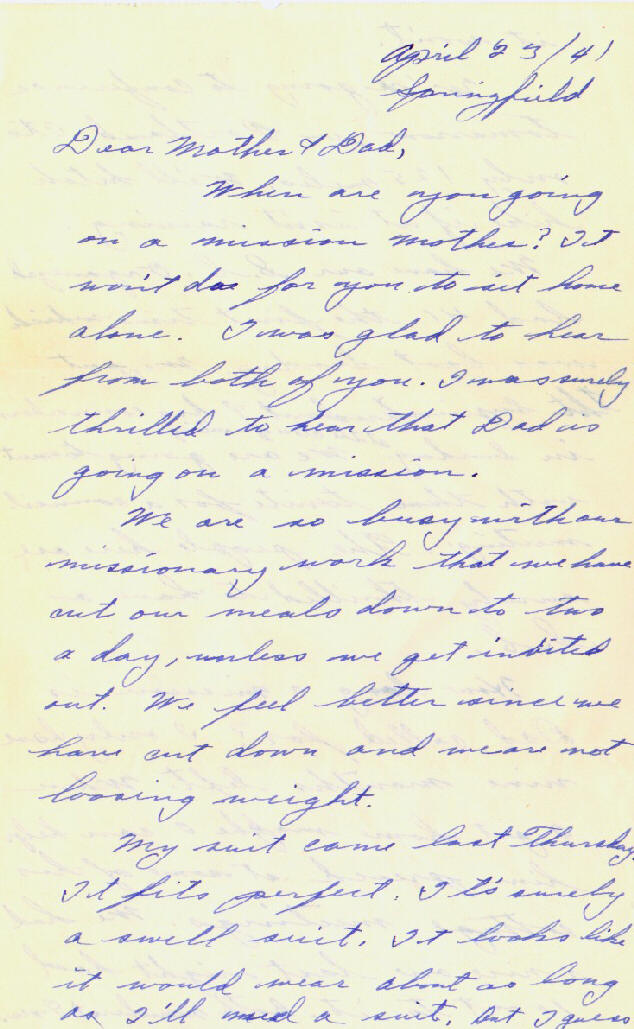 April 23/41
Springfield
Dear Mother & Dad,
When are you going
on a mission mother? It
won't doe for you to sit home
alone. I was glad to hear
from both of you. I was surely
thrilled to hear that Dad is
going on a mission.
We are so busy with our
missionary work that we have
cut our meals down to two
a day, unless we get invited
out. We feel better since we
have cut down and we are not
loosing weight.
My suit came last Thursday.
It fits perfect. It's surely
a swell suit. It looks like
it would wear about as long
as I'll need a suit, but I guess